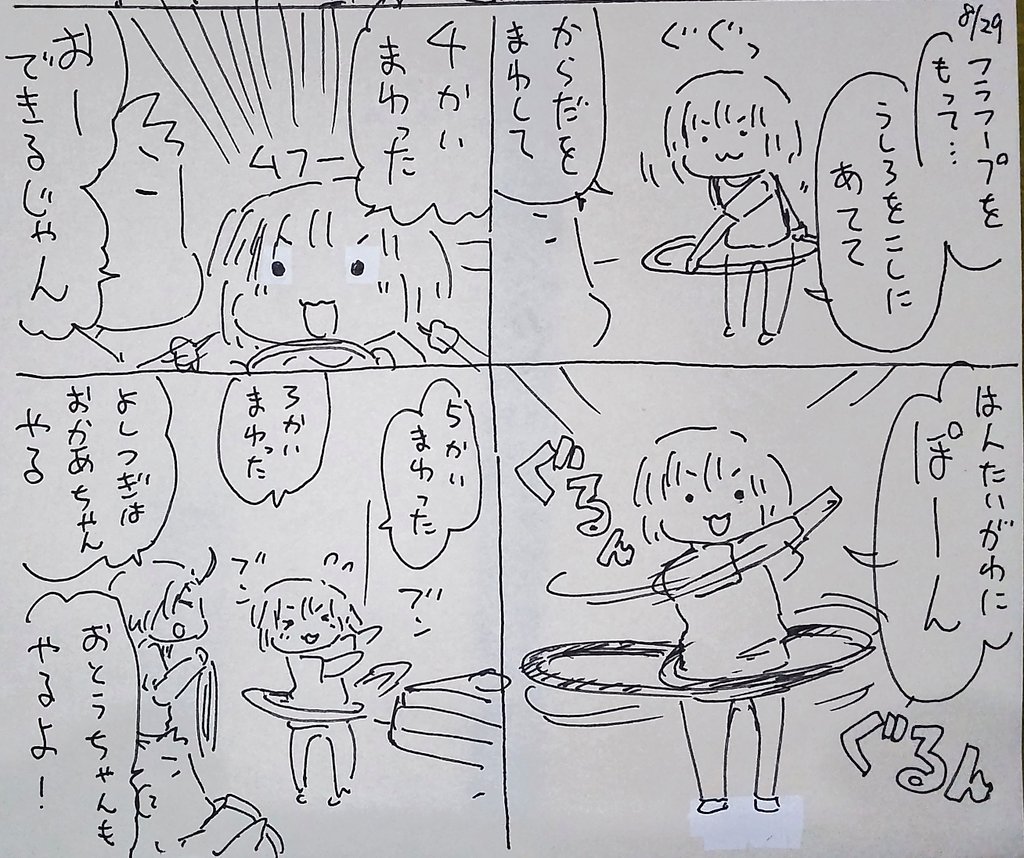 8/29
フラフープを
もって…
うしろをこしに
あてて
ぐぐっ
からだを
まわして
はんたいがわに
ぽーん
ぐるん
ぐるん
4かい
まわった
おー
できるじゃん
5かい
まわった
3かい
まわった
ブン
ブン
よしつぎは
おかあちゃん
やる
おとうちゃんも
やるよ!